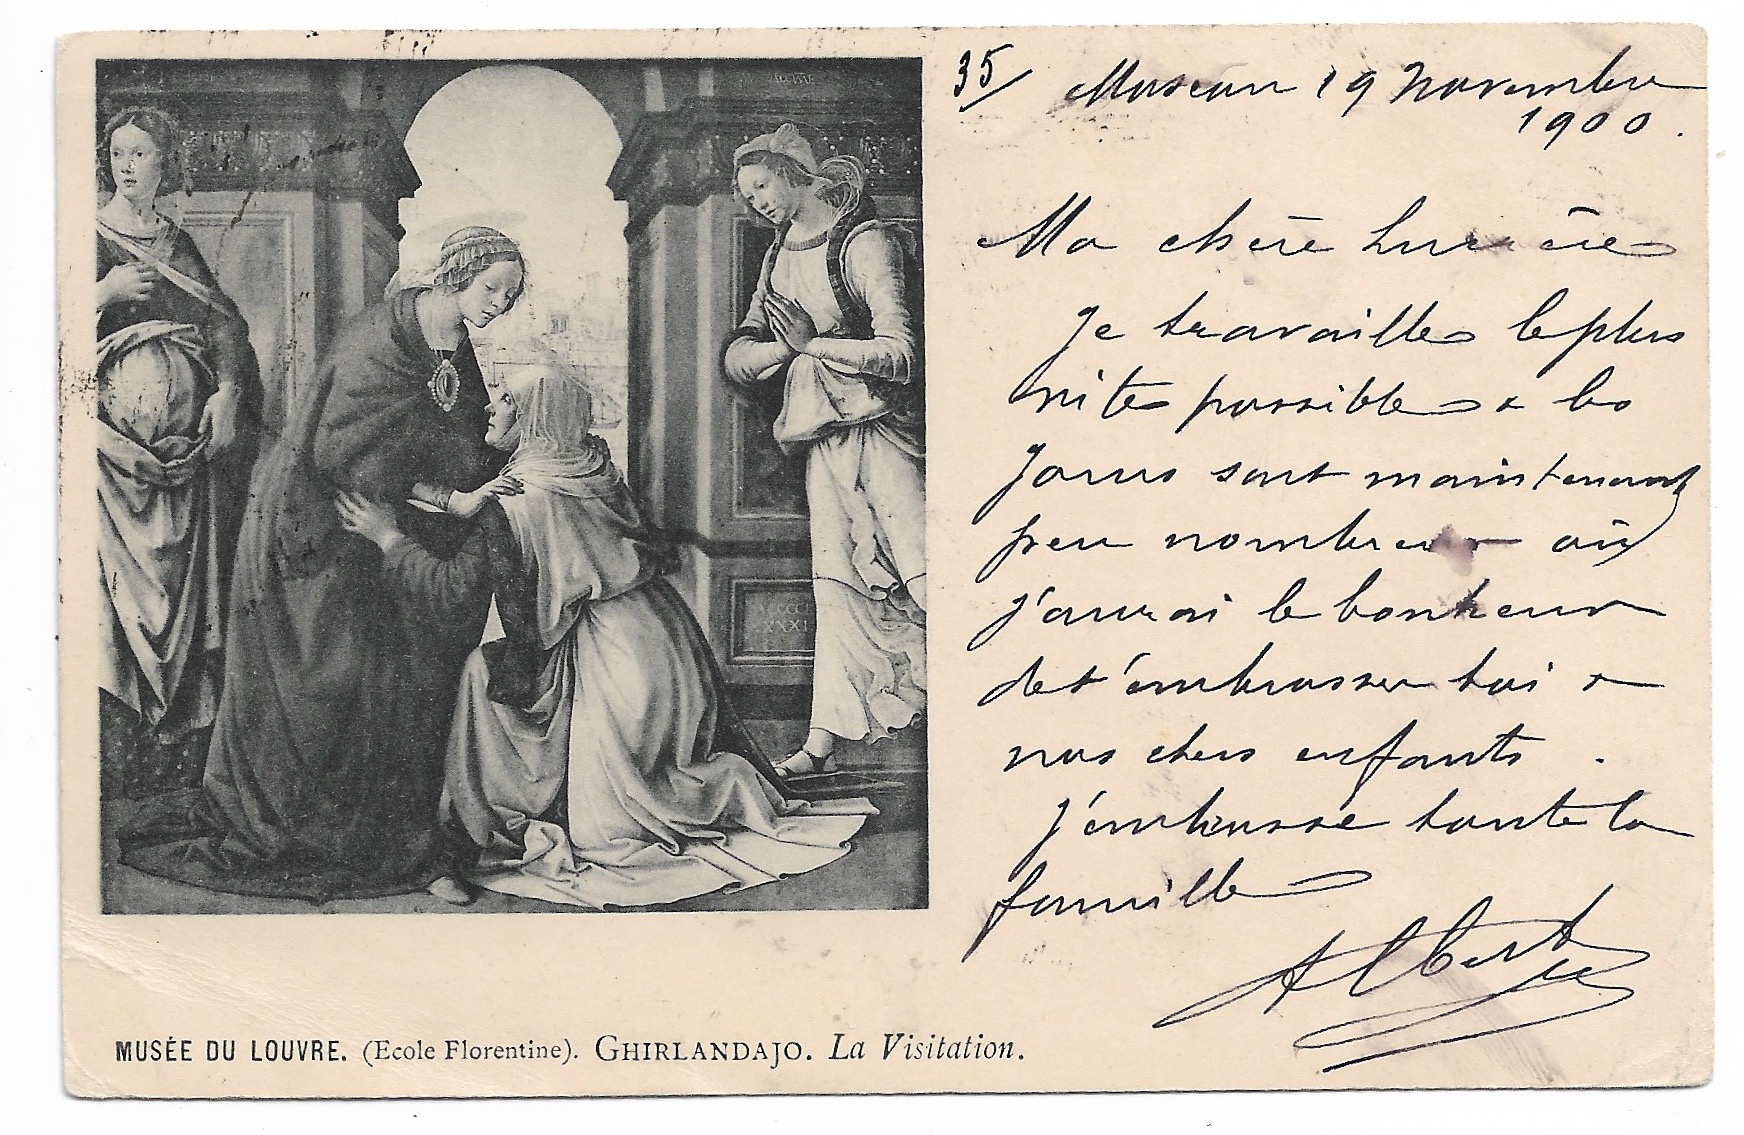 35/ Moscou 19 Novembre
1900.
Ma chère
Je travaille le plus
vite possible & les
jours sont maintenant
peu nombreux où
j'aurai le bonheur
de t'embrasser toi &
nos chers enfants.
J'embrasse toute la
famille
Albert
MUSÉE DU LOUVRE. (Ecole Florentine). GHIRLANDAJO. La Visitation.
MCCCC
XXXXI